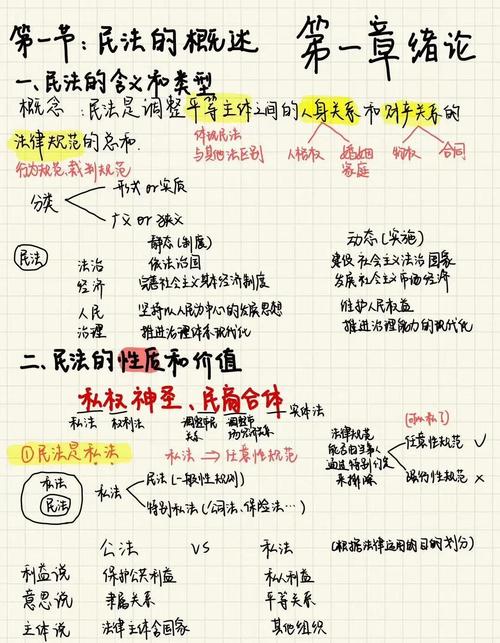 第一章绪论
第一节：民法的概述
一、民法的含义和类型
概念：民法是调整平等主体之间的人身关系和财产关系的
法律规范的总和.
体现民法
与其他法区别
人格权 婚姻家庭 物权 合同
行为规范、裁判规范
分类
形式 or 实质
广义 or 狭义
静态(制度) 动态(实施)
民法
法治 依法治国 建设社会主义法治国家
经济 完善社会主义基本经济制度 发展社会主义市场经济
人民 坚持以人民为中心的发展思想 维护人民权益
治理 推进治理体系现代化 推进治理能力的现代化
二、民法的性质和价值
私权神圣、民商合体 → 实体法
私法 权利法 调整市民关系 调整市场经济关系
①民法是私法 私法 → 任意性规范
法律规范能否由当事人通过特别约定来排除
(可以私了)
任意性规范 ✓
强行性规范 ×
私法
民法
私法
民法(一般性规则)
特别私法(公司法、保险法…)
公法 VS 私法 (根据法律运用的目的划分)
利益说 保护公共利益 私人利益
意思说 隶属关系 平等关系
主体说 法律主体含国家 其他组织